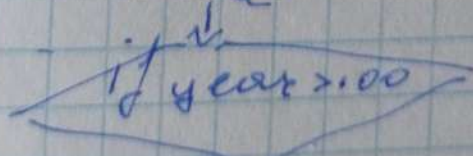 if year %.00